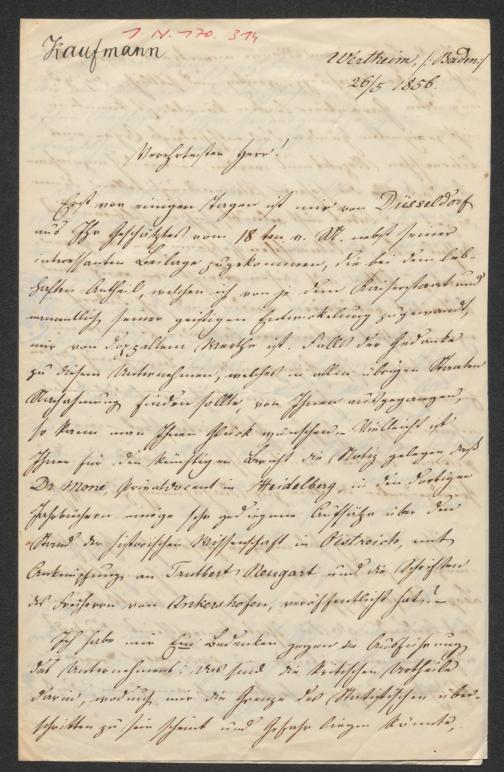 1 N. 170. 314
Kaufmann
Wertheim, /: Baden :/
26/5 1856.
Verehrtester Herr!
Erst vor einigen Tagen ist mir von Düsseldorf
aus Ihr Geschätztes vom 18ten v. M. nebst seiner
interessanten Beilage zugekommen, die bei dem leb-
haften Antheil, welchen ich von je dem Kaiserstaat und
namentlich seiner geistigen Entwickelung zugewandt,
mir von doppeltem Werthe ist. Falls der Gedanke
zu diesem Unternehmen, welches in allen übrigen Staaten
Nachahmung finden sollte, von Ihnen ausgegangen,
so kann man Ihnen Glück wünschen. Vielleicht ist
Ihnen für den künftigen Bericht die Notiz gelegen, daß
Dr Mone, Privatdocent in Heidelberg, in den dortigen
Jahrbüchern einige sehr gediegene Aufsätze über den
Stand der historischen Wissenschaft in Oestreich, mit
Anknüpfung an Trutbert Neugart und die Schriften
des Freiherrn von Ankershofen, veröffentlicht hat. –
Ich habe nur Ein Bedenken gegen die Ausführung
des Unternehmens: das sind die kritischen Urtheile
darin, wodurch mir die Grenze des Statistischen über-
schritten zu sein scheint und Gefahr liegen könnte,